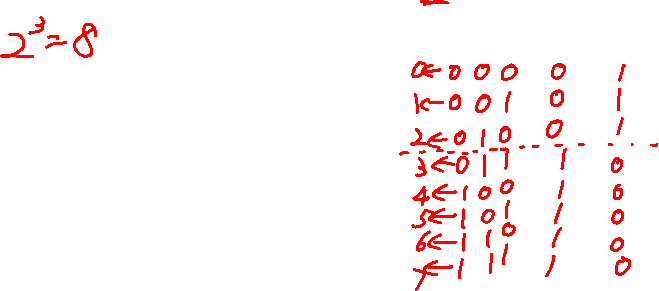 2³=8
0← 0 0 0 0 1
1← 0 0 1 0 1
2← 0 1 0 0 1
3← 0 1 1 1 0
4← 1 0 0 1 0
5← 1 0 1 1 0
6← 1 1 0 1 0
7← 1 1 1 1 0